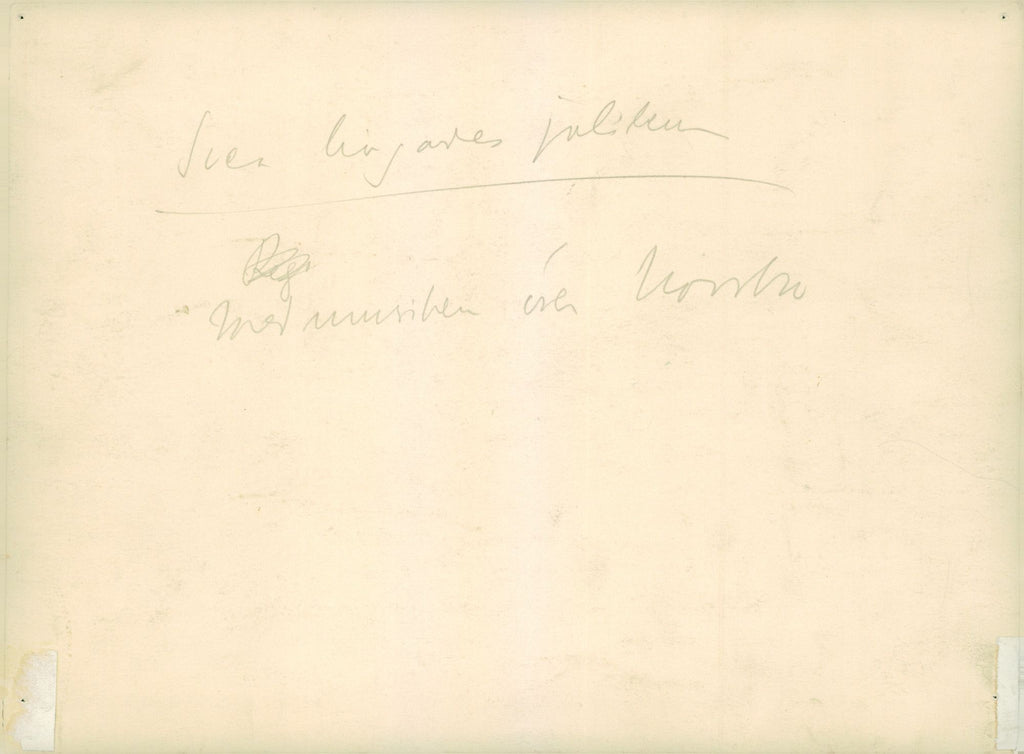 Svea livgardes jubileum
Med musiken över Norrbro